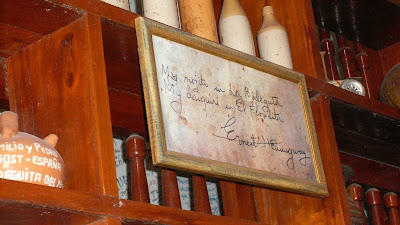 My mojito in La Bodeguita
My daiquiri in El Floridita
Ernest Hemingway
MILIO y PEDR
GOST - ESPAÑA
DEGUITA DEL